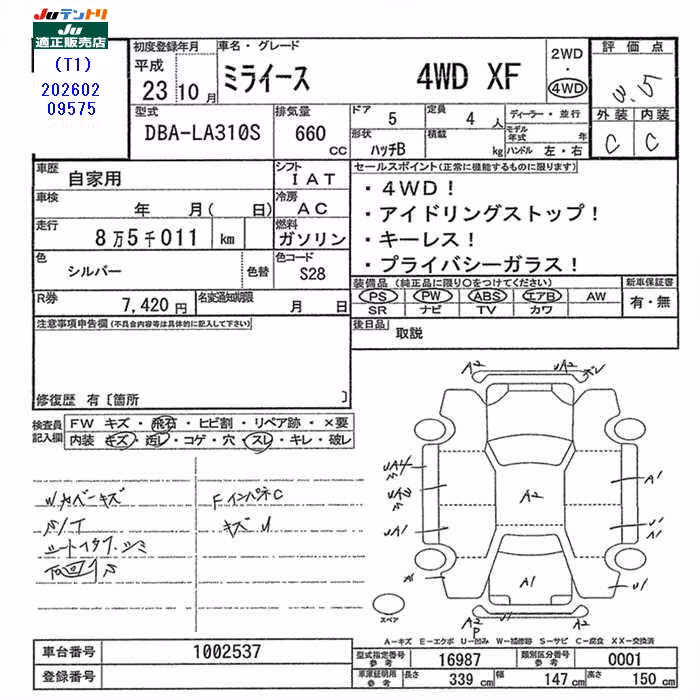 JUテントリ
JU
適正販売店
(T1)
202602
09575
初度登録年月
平成
23 10 月
車名・グレード
ミライース 4WD XF
2WD
・
4WD
評価点
3.5
外装 内装
C C
型式
DBA-LA310S
排気量
660
CC
ドア 5
定員 4 人
形状 ハッチB
積載 kg
ディーラー・並行
モデル年式 年
ハンドル 左・右
車歴 自家用
シフト IAT
車検 年 月( 日)
冷房 AC
走行 8万5千011 km
燃料 ガソリン
色 シルバー 色替
色コード S28
R券 7,420 円
名変通知期限 月 日
セールスポイント(正常に機能するものに限ります)
・4WD!
・アイドリングストップ!
・キーレス!
・プライバシーガラス!
装備品 (純正品に限り○をつけてください)
PS PW ABS エアB AW
SR ナビ TV カワ
新車保証書
有・無
後日品 取説
注意事項申告欄(不具合内容等は具体的に記入して下さい)
修復歴 有〔箇所 〕
検査員記入欄
FW キズ・飛石・ヒビ割・リペア跡・×要
内装 キズ・汚レ・コゲ・穴・スレ・キレ・破レ
Fインパネ C
キズ U
A2
A2
A1
A1
UA1
U1
A1
U1
A2
P
スペア
A-キズ E-エクボ U-凹み W-補修跡 S-サビ C-腐食 XX-交換済
車台番号 1002537
登録番号
型式指定番号参考 16987
類別区分番号参考 0001
車庫証明用参考 長さ 339 cm 幅 147 cm 高さ 150 cm